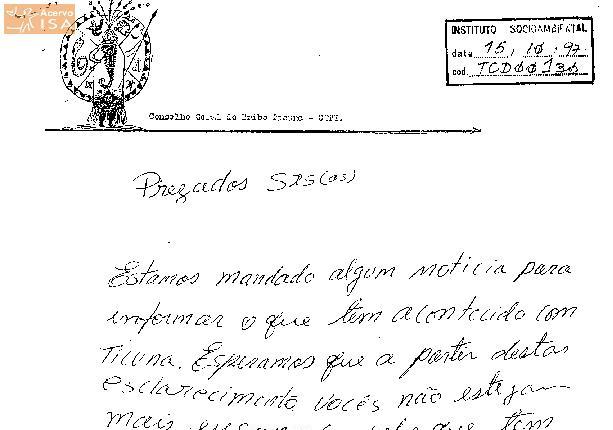 Acervo
ISA
INSTITUTO SOCIOAMBIENTAL
data 15, 10, 97
cod. TCD00130
Conselho Geral da Tribo Ticuna - CGTT.
Prezados Srs(as)
Estamos mandado algum noticia para
informar o que tem acontecido com
Ticuna. Esperamos que a partir destas
esclarecimento vocês não estejam
mais que tem